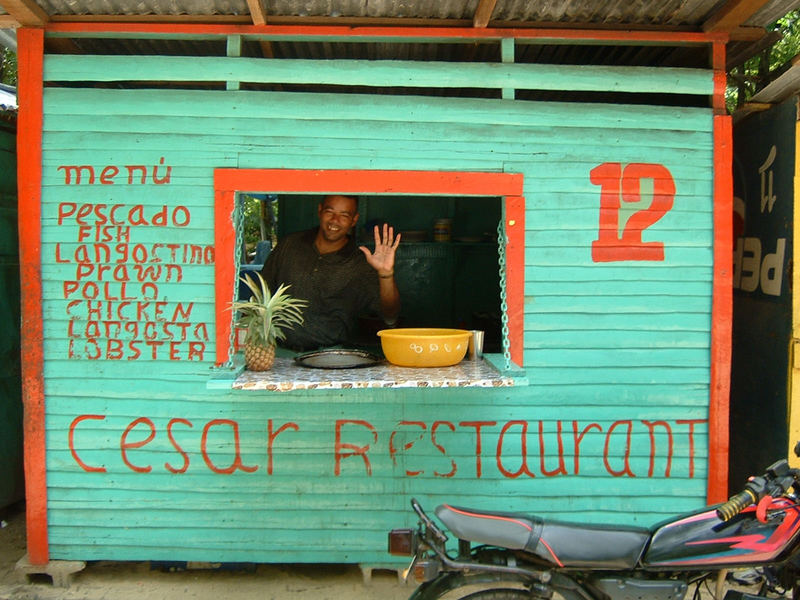 menú
Pescado
FISH
Langostino
Prawn
POLLO
CHICKEN
Langosta
LOBSTER
12
Cesar Restaurant